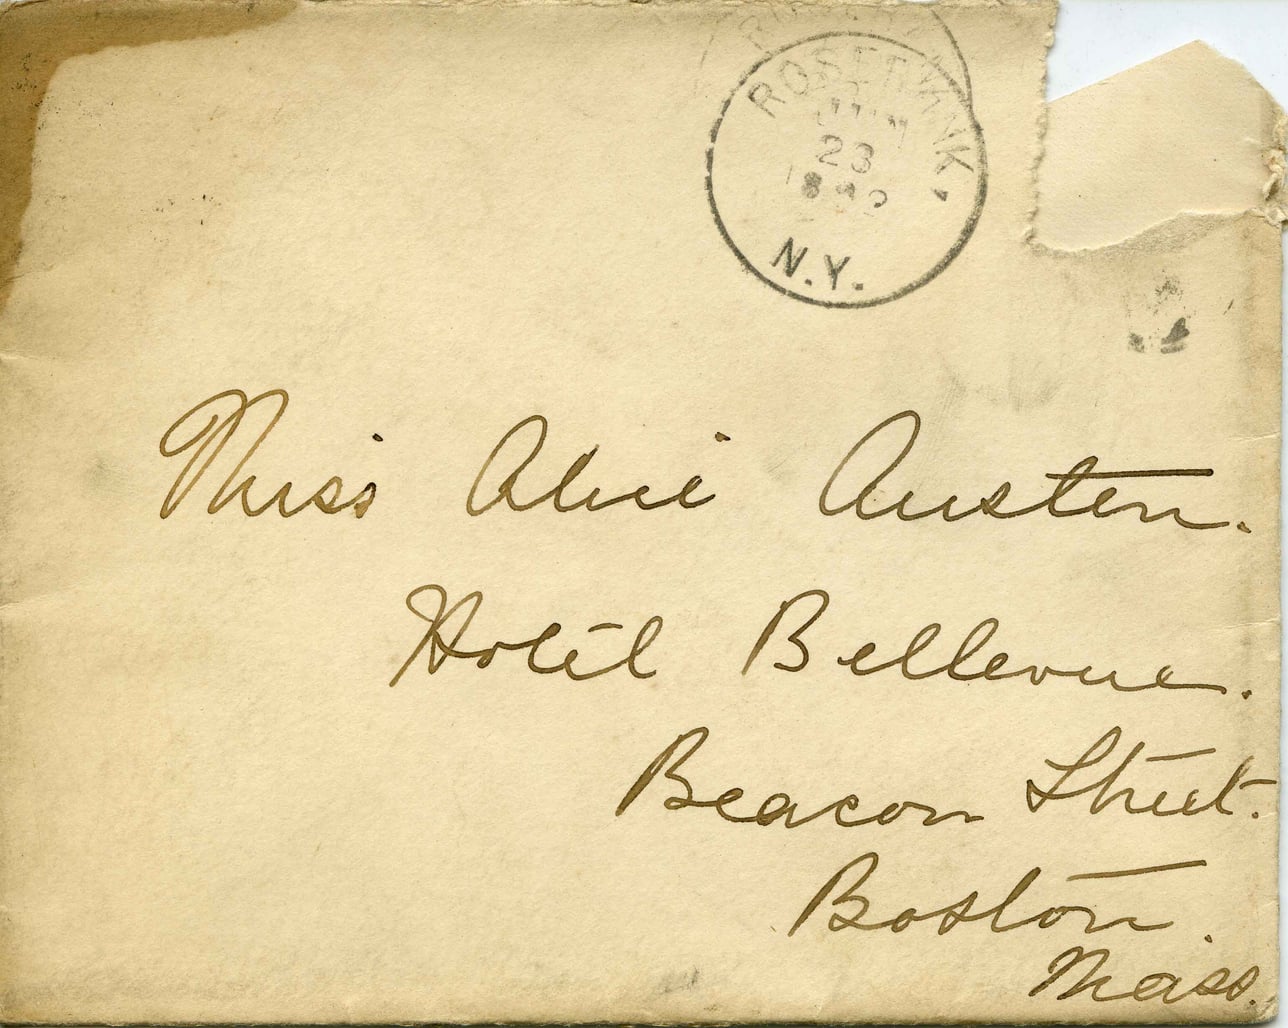 ROSEBANK,
23
N.Y.
Miss Alice Austen.
Hotel Bellevue.
Beacon Street.
Boston.
Mass.